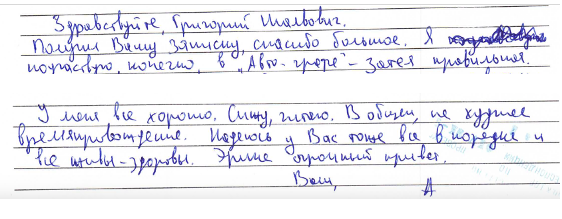 Здравствуйте, Григорий Шалвович.
Получил Вашу записку, спасибо большое. Я
поучаствую, конечно, в „Авто-графе" – Затея правильная.
У меня все хорошо. Сижу, читаю. В общем, не худшее
времяпровождение. Надеюсь у Вас тоже все в порядке и
все живы-здоровы. Эрике огромный привет.
Ваш,
А